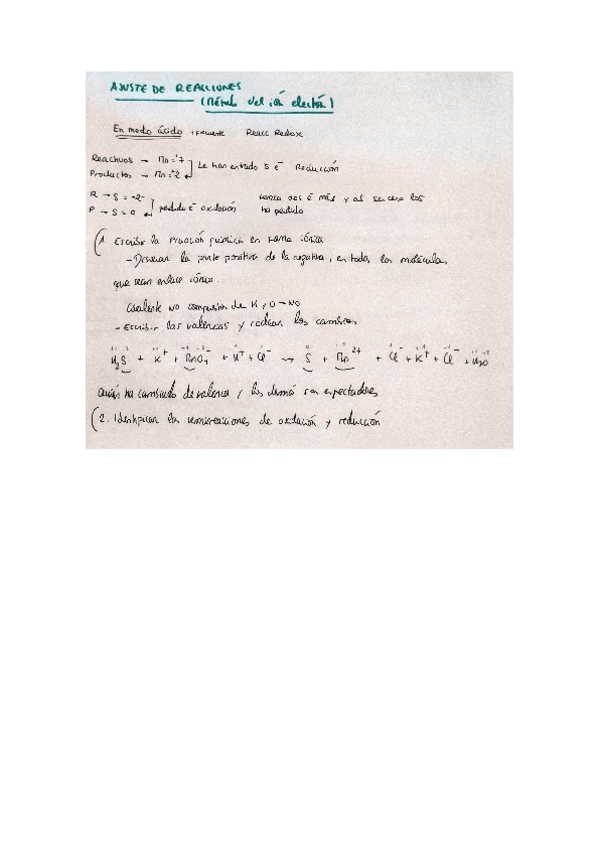 AJUSTE DE REACCIONES
(Método del ión electrón)
En modo ácido Reacc Redox
Reactivos → Mn = +7 Le han entrado 5 e⁻ Reducción
Productos → Mn = +2
R → S = -2 tenía dos e⁻ más y al ser cero los
P → S = 0 pérdida e⁻ oxidación ha perdido
1 Escribir la reacción química en forma iónica
- Disociar la parte positiva de la negativa, en todas las moléculas,
que sean enlace iónico.
Covalente no compuestos de H y O → NO
- Escribir las valencias y rodear los cambios
H₂S + K⁺ + MnO₄⁻ + H⁺ + Cl⁻ → S + Mn²⁺ + Cl⁻ + K⁺ + Cl⁻ + H₂O
Quién ha cambiado de valencia, los demás son espectadores
2. Identificar las semirreacciones de oxidación y reducción